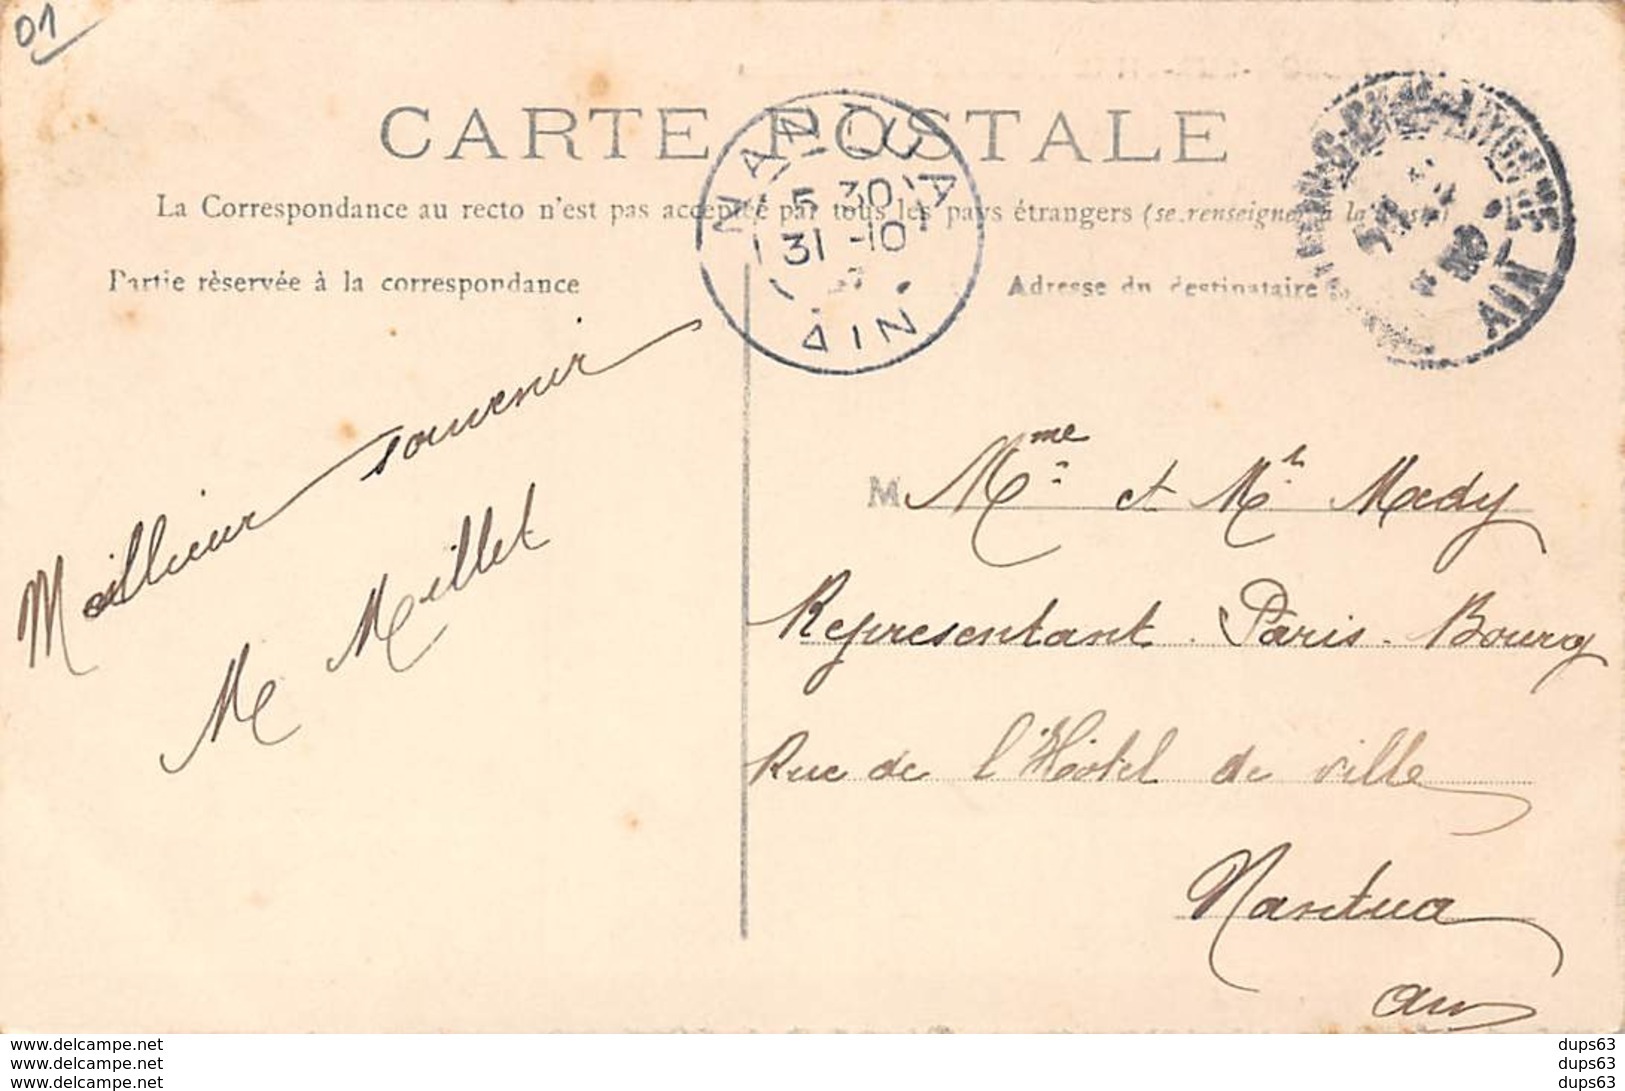 01
CARTE POSTALE
La Correspondance au recto n'est pas acceptée par tous les pays étrangers (se renseigner à la Poste)
Partie rèservée à la correspondance
Adresse du destinataire
NANTUA
5 30
31 -10
AIN
AIN
Meilleur souvenir
M Millet
M Mme et Mr Mady
Representant. Paris. Bourg
Rue de l'Hôtel de ville
Nantua
Ain
www.delcampe.net
www.delcampe.net
www.delcampe.net
dups63
dups63
dups63